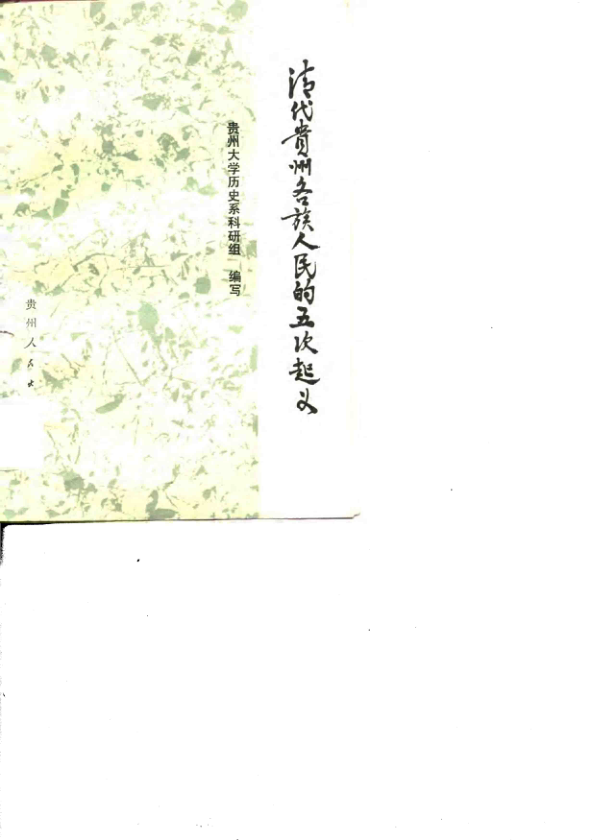 清代贵州各族人民的五次起义
贵州大学历史系科研组 编写
贵州人民出